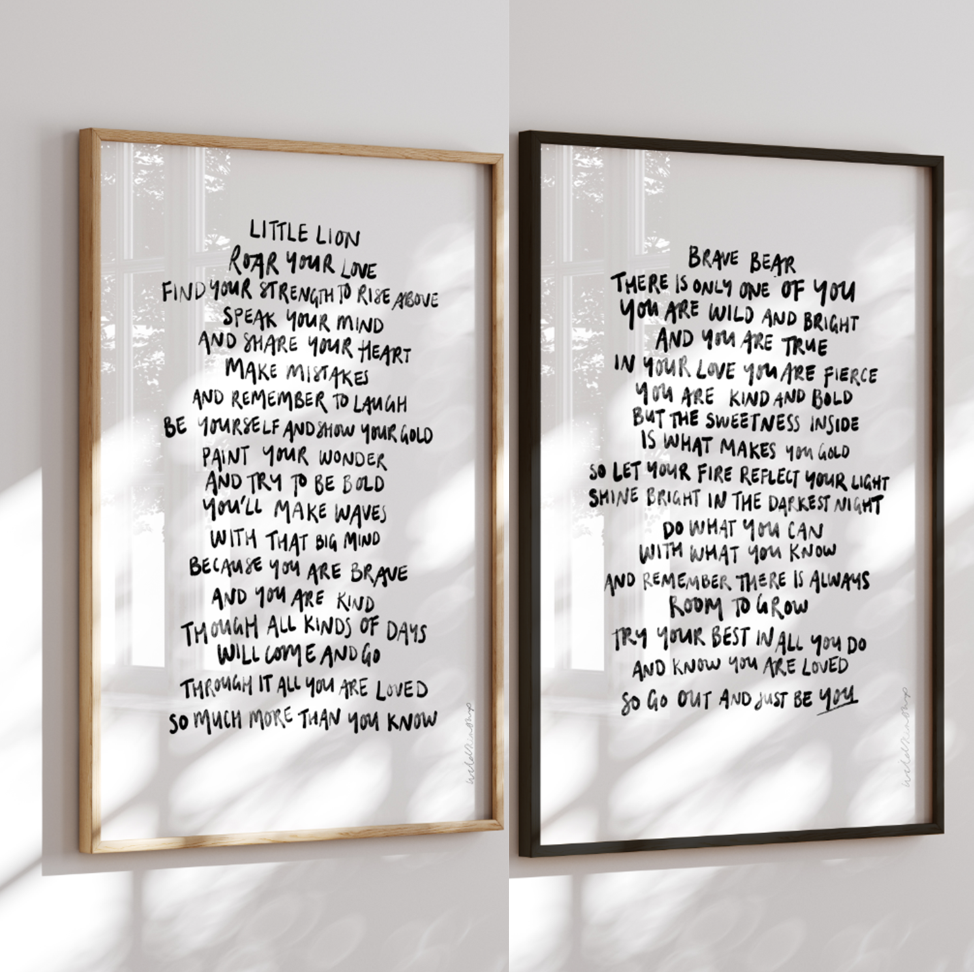 LITTLE LION
ROAR YOUR LOVE
FIND YOUR STRENGTH TO RISE ABOVE
SPEAK YOUR MIND
AND SHARE YOUR HEART
MAKE MISTAKES
AND REMEMBER TO LAUGH
BE YOURSELF AND SHOW YOUR GOLD
PAINT YOUR WONDER
AND TRY TO BE BOLD
YOU'LL MAKE WAVES
WITH THAT BIG MIND
BECAUSE YOU ARE BRAVE
AND YOU ARE KIND
THOUGH ALL KINDS OF DAYS
WILL COME AND GO
THROUGH IT ALL YOU ARE LOVED
SO MUCH MORE THAN YOU KNOW
BRAVE BEAR
THERE IS ONLY ONE OF YOU
YOU ARE WILD AND BRIGHT
AND YOU ARE TRUE
IN YOUR LOVE YOU ARE FIERCE
YOU ARE KIND AND BOLD
BUT THE SWEETNESS INSIDE
IS WHAT MAKES YOU GOLD
SO LET YOUR FIRE REFLECT YOUR LIGHT
SHINE BRIGHT IN THE DARKEST NIGHT
DO WHAT YOU CAN
WITH WHAT YOU KNOW
AND REMEMBER THERE IS ALWAYS
ROOM TO GROW
TRY YOUR BEST IN ALL YOU DO
AND KNOW YOU ARE LOVED
SO GO OUT AND JUST BE YOU